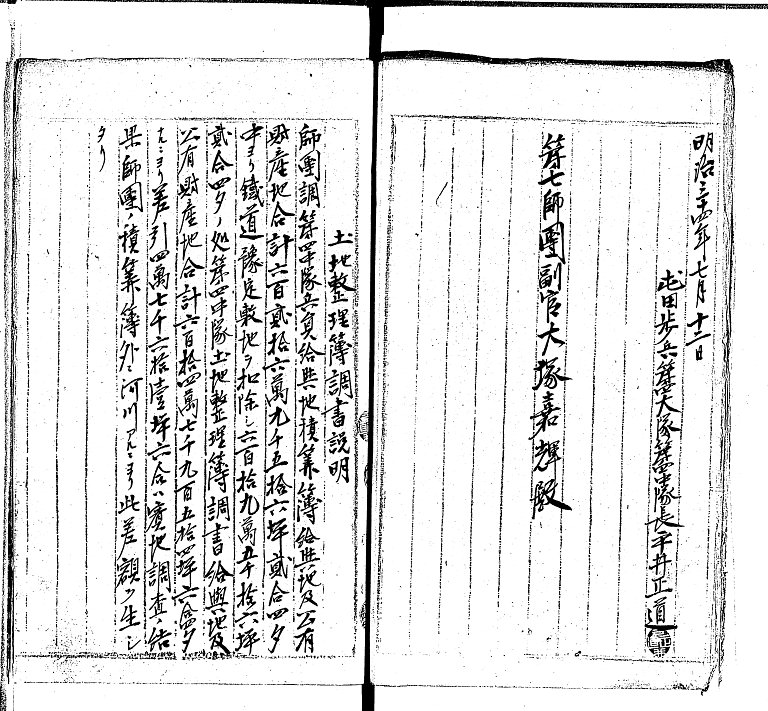 明治三十四年七月十二日
屯田歩兵第三大隊第四中隊長平井正道
第七師團副官大塚嘉輝殿
土地整理簿調書説明
師團調第四中隊兵員給與地積算簿給與地及公有
財産地合計六百貳拾六萬九千五拾六坪貳合四夕
中ヨリ鐵道豫定敷地ヲ扣除シ六百拾九萬五千拾六坪
貳合四夕ノ処第四中隊土地整理簿調書給與地及
公有財産地合計六百拾四萬七千九百五拾四坪六合四夕
ナルニヨリ差引四萬七千六拾壹坪六合ハ實地調査ノ結
果師團ノ積算簿外ニ河川アルニヨリ此差額ヲ生シ
タリ